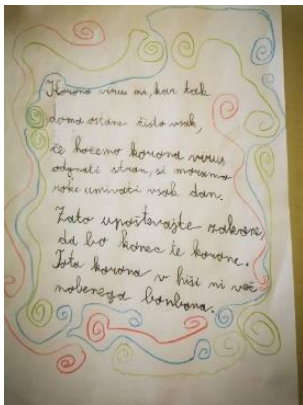 Korona virus ni, kar tak
doma ostane čisto vsak,
če hočemo korona virus
odgnati stran, si moramo
roke umivati vsak dan.
Zato upoštevajte zakone,
da bo konec te korone.
Tota korona v hiši ni več
nobenega bonbona.